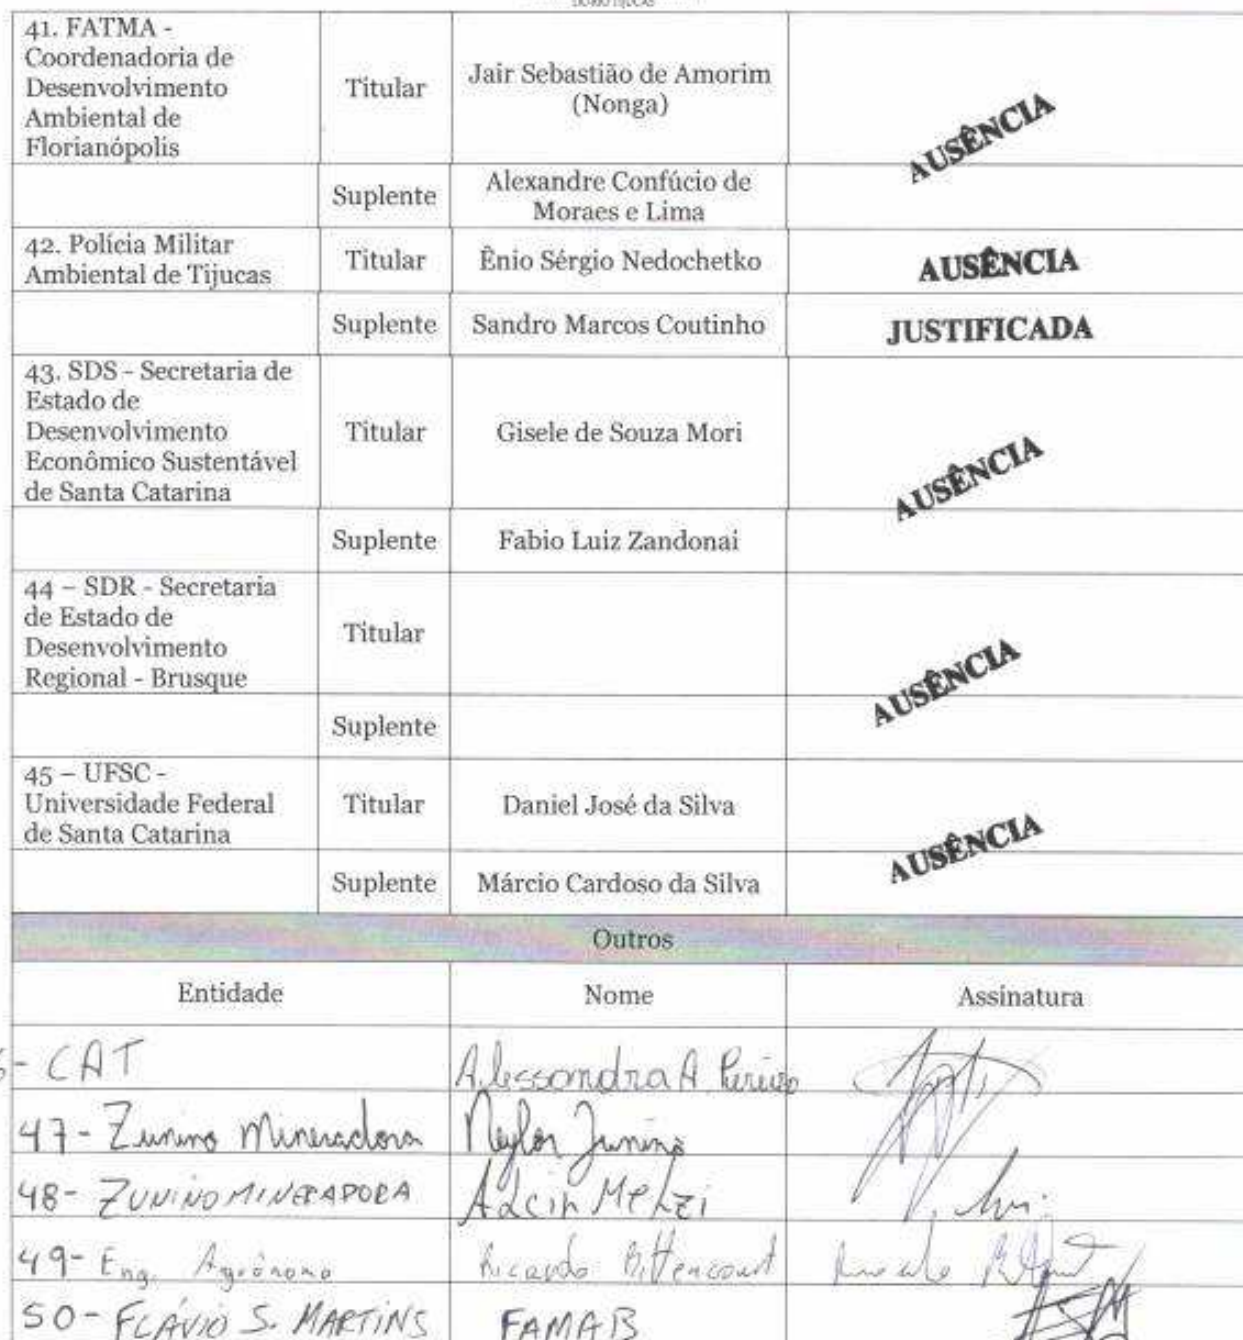 41. FATMA -
Coordenadoria de
Desenvolvimento
Ambiental de
Florianópolis
Titular
Jair Sebastião de Amorim
(Nonga)
AUSÊNCIA
Suplente
Alexandre Confúcio de
Moraes e Lima
42. Polícia Militar
Ambiental de Tijucas
Titular
Ênio Sérgio Nedochetko
AUSÊNCIA
Suplente
Sandro Marcos Coutinho
JUSTIFICADA
43. SDS - Secretaria de
Estado de
Desenvolvimento
Econômico Sustentável
de Santa Catarina
Titular
Gisele de Souza Mori
AUSÊNCIA
Suplente
Fabio Luiz Zandonai
44 – SDR - Secretaria
de Estado de
Desenvolvimento
Regional - Brusque
Titular
AUSÊNCIA
Suplente
45 – UFSC -
Universidade Federal
de Santa Catarina
Titular
Daniel José da Silva
AUSÊNCIA
Suplente
Márcio Cardoso da Silva
Outros
Entidade
Nome
Assinatura
- CAT
Alessandra A
47- Zunino Mineradora
Zunino
48- ZUNINO MINERADORA
49- Eng. Agrônomo
Ricardo Bittencourt
50- FLÁVIO S. MARTINS
FAMAB